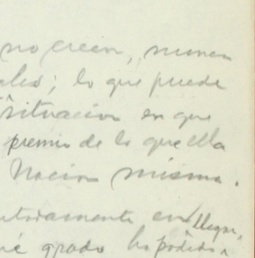 no creen, nunca
ales; lo que puede
situación en que
premio de lo que ella
Nación misma.
utadamente en llegar,
é grado ha podido